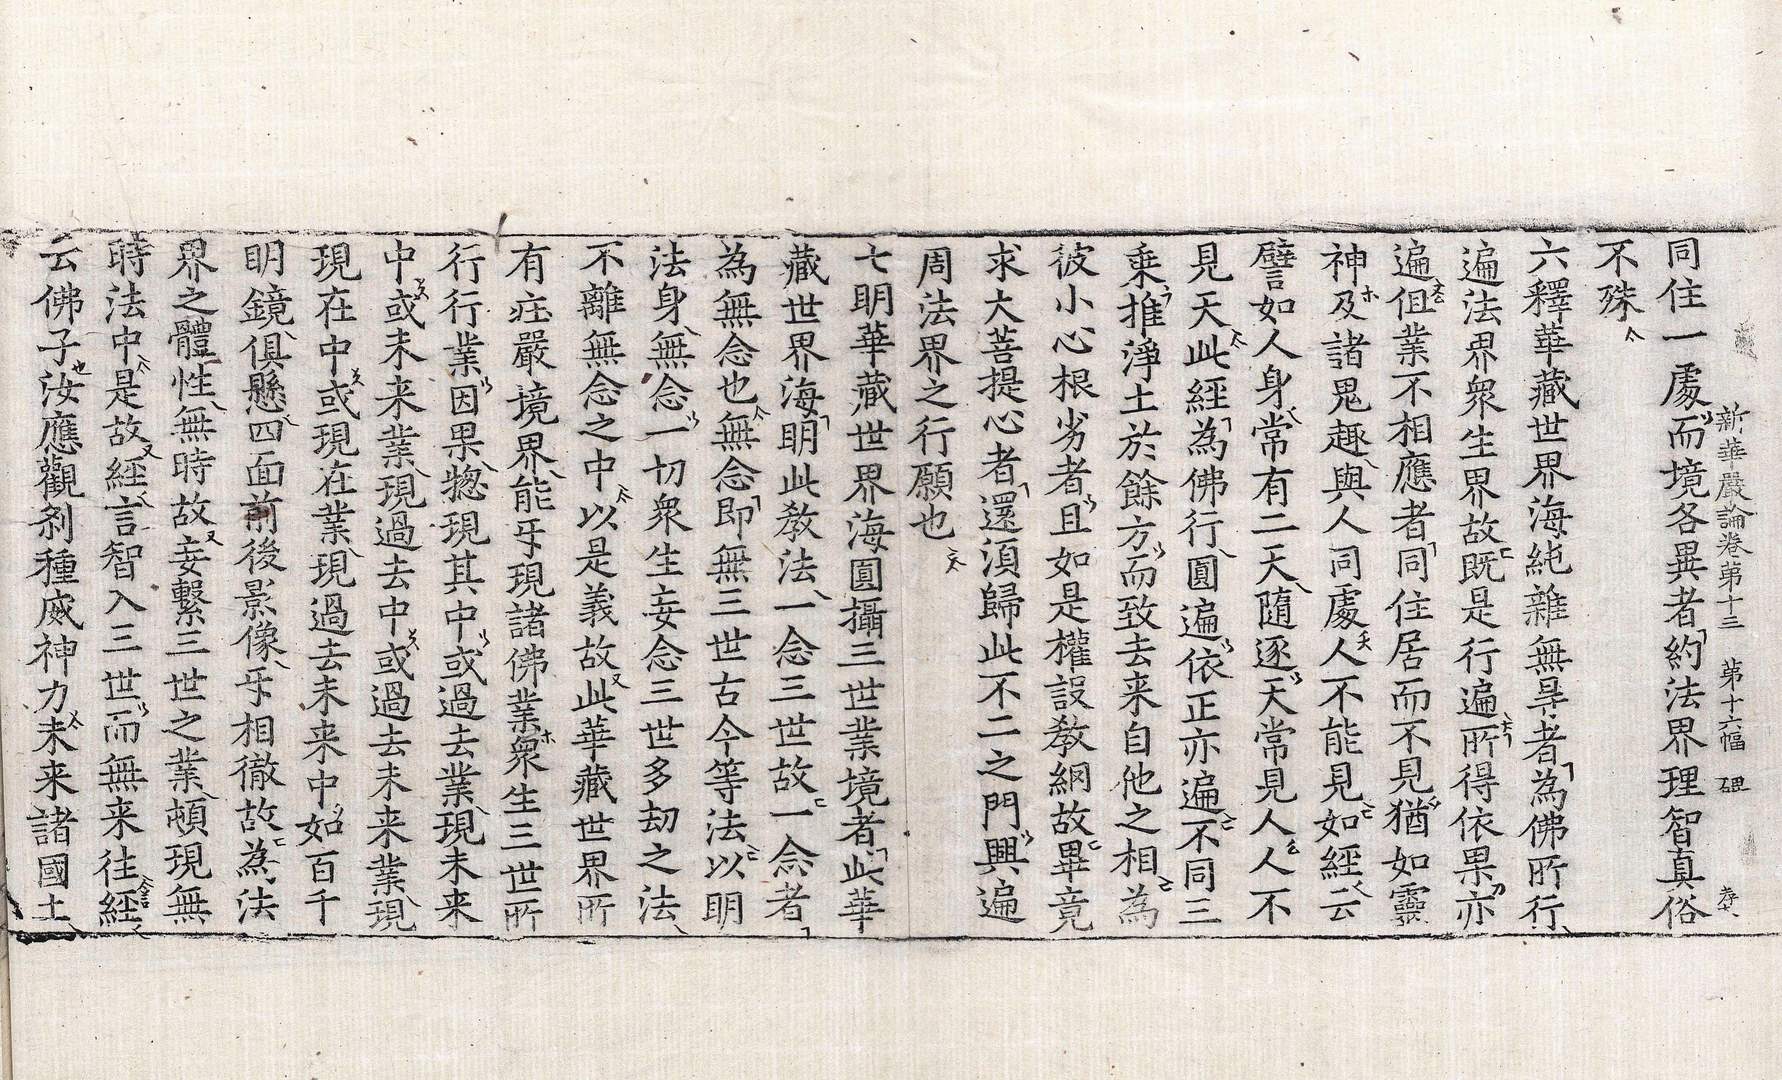 新華嚴論卷第十三 第十六幅 𥐻 孝六
同住一處而境各異者約法界理智真俗
不殊
六釋華藏世界海純雜無㝵者為佛所行
遍法界衆生界故旣是行遍所得依果亦
遍伹業不相應者同住居而不見猶如靈
神及諸鬼趣與人同處人不能見如經云
譬如人身常有二天隨逐天常見人人不
見天此經為佛行圓遍依正亦遍不同三
乗推淨土於餘方而致去来自他之相為
彼小心根劣者且如是權設教網故畢竟
求大菩提心者還須歸此不二之門興遍
周法界之行願也
七明華藏世界海圓攝三世業境者此華
藏世界海明此教法一念三世故一念者
為無念也無念即無三世古今等法以明
法身無念一切衆生妄念三世多劫之法
不離無念之中以是義故此華藏世界所
有庄嚴境界能㸦現諸佛業衆生三世所
行行業因果揔現其中或過去業現未来
中或未来業現過去中或過去未来業現
現在中或現在業現過去未来中如百千
明鏡俱懸四面前後影像㸦相徹故為法
界之體性無時故妄繫三世之業頓現無
時法中是故經言智入三世而無来往經
云佛子汝應觀刹種威神力未来諸國土